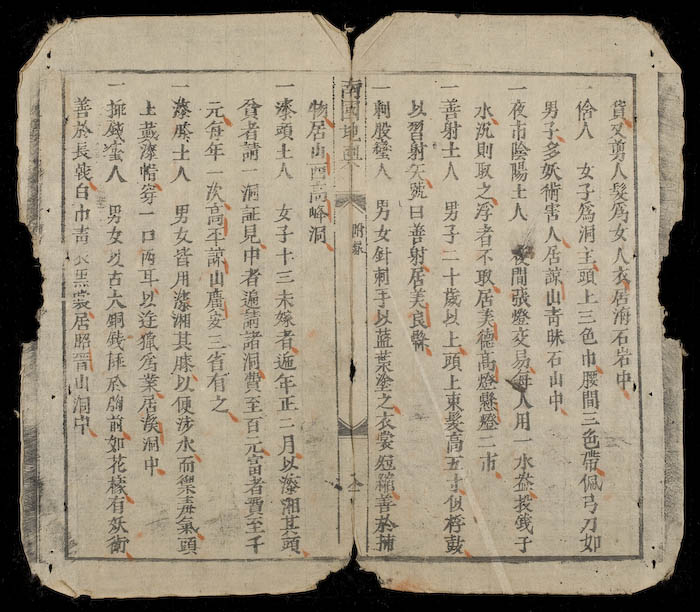 貨又剪人髮爲女人衣居海石岩中
一 人 女子爲洞主頭上三色巾腰間三色帶佩弓刀如
男子多妖術害人居諒山青昧石山中
一夜市陰陽土人 夜間張燈交易每人用一水盎投錢于
水沉則取之浮者不取居美德高燈懸燈二市
一善射土人 男子二十歲以上頭上束髮高五寸似將鼓
以習射矢號曰善射居美良縣
一刺股蠻人 男女針刺手以藍葉塗之衣裳短 善於捕
南國地輿 附錄
物居山西高峰洞
一漆頭土人 女子十三未嫁者迎年正二月以漆湘其頭
貧者請一洞証見中者遍請諸洞費至百元富者費至千
元每年一次高平諒山廣安三省有之
一漆膝土人 男女皆用漆湘其膝以便涉水而禦毒氣頭
上戴漆帽穿一口兩耳以 獵爲業居 洞中
一掛錢蠻人 男女以古大銅錢 於胸前如花樣有妖術
善於長戟白巾青衣黑裳居照晋山洞中